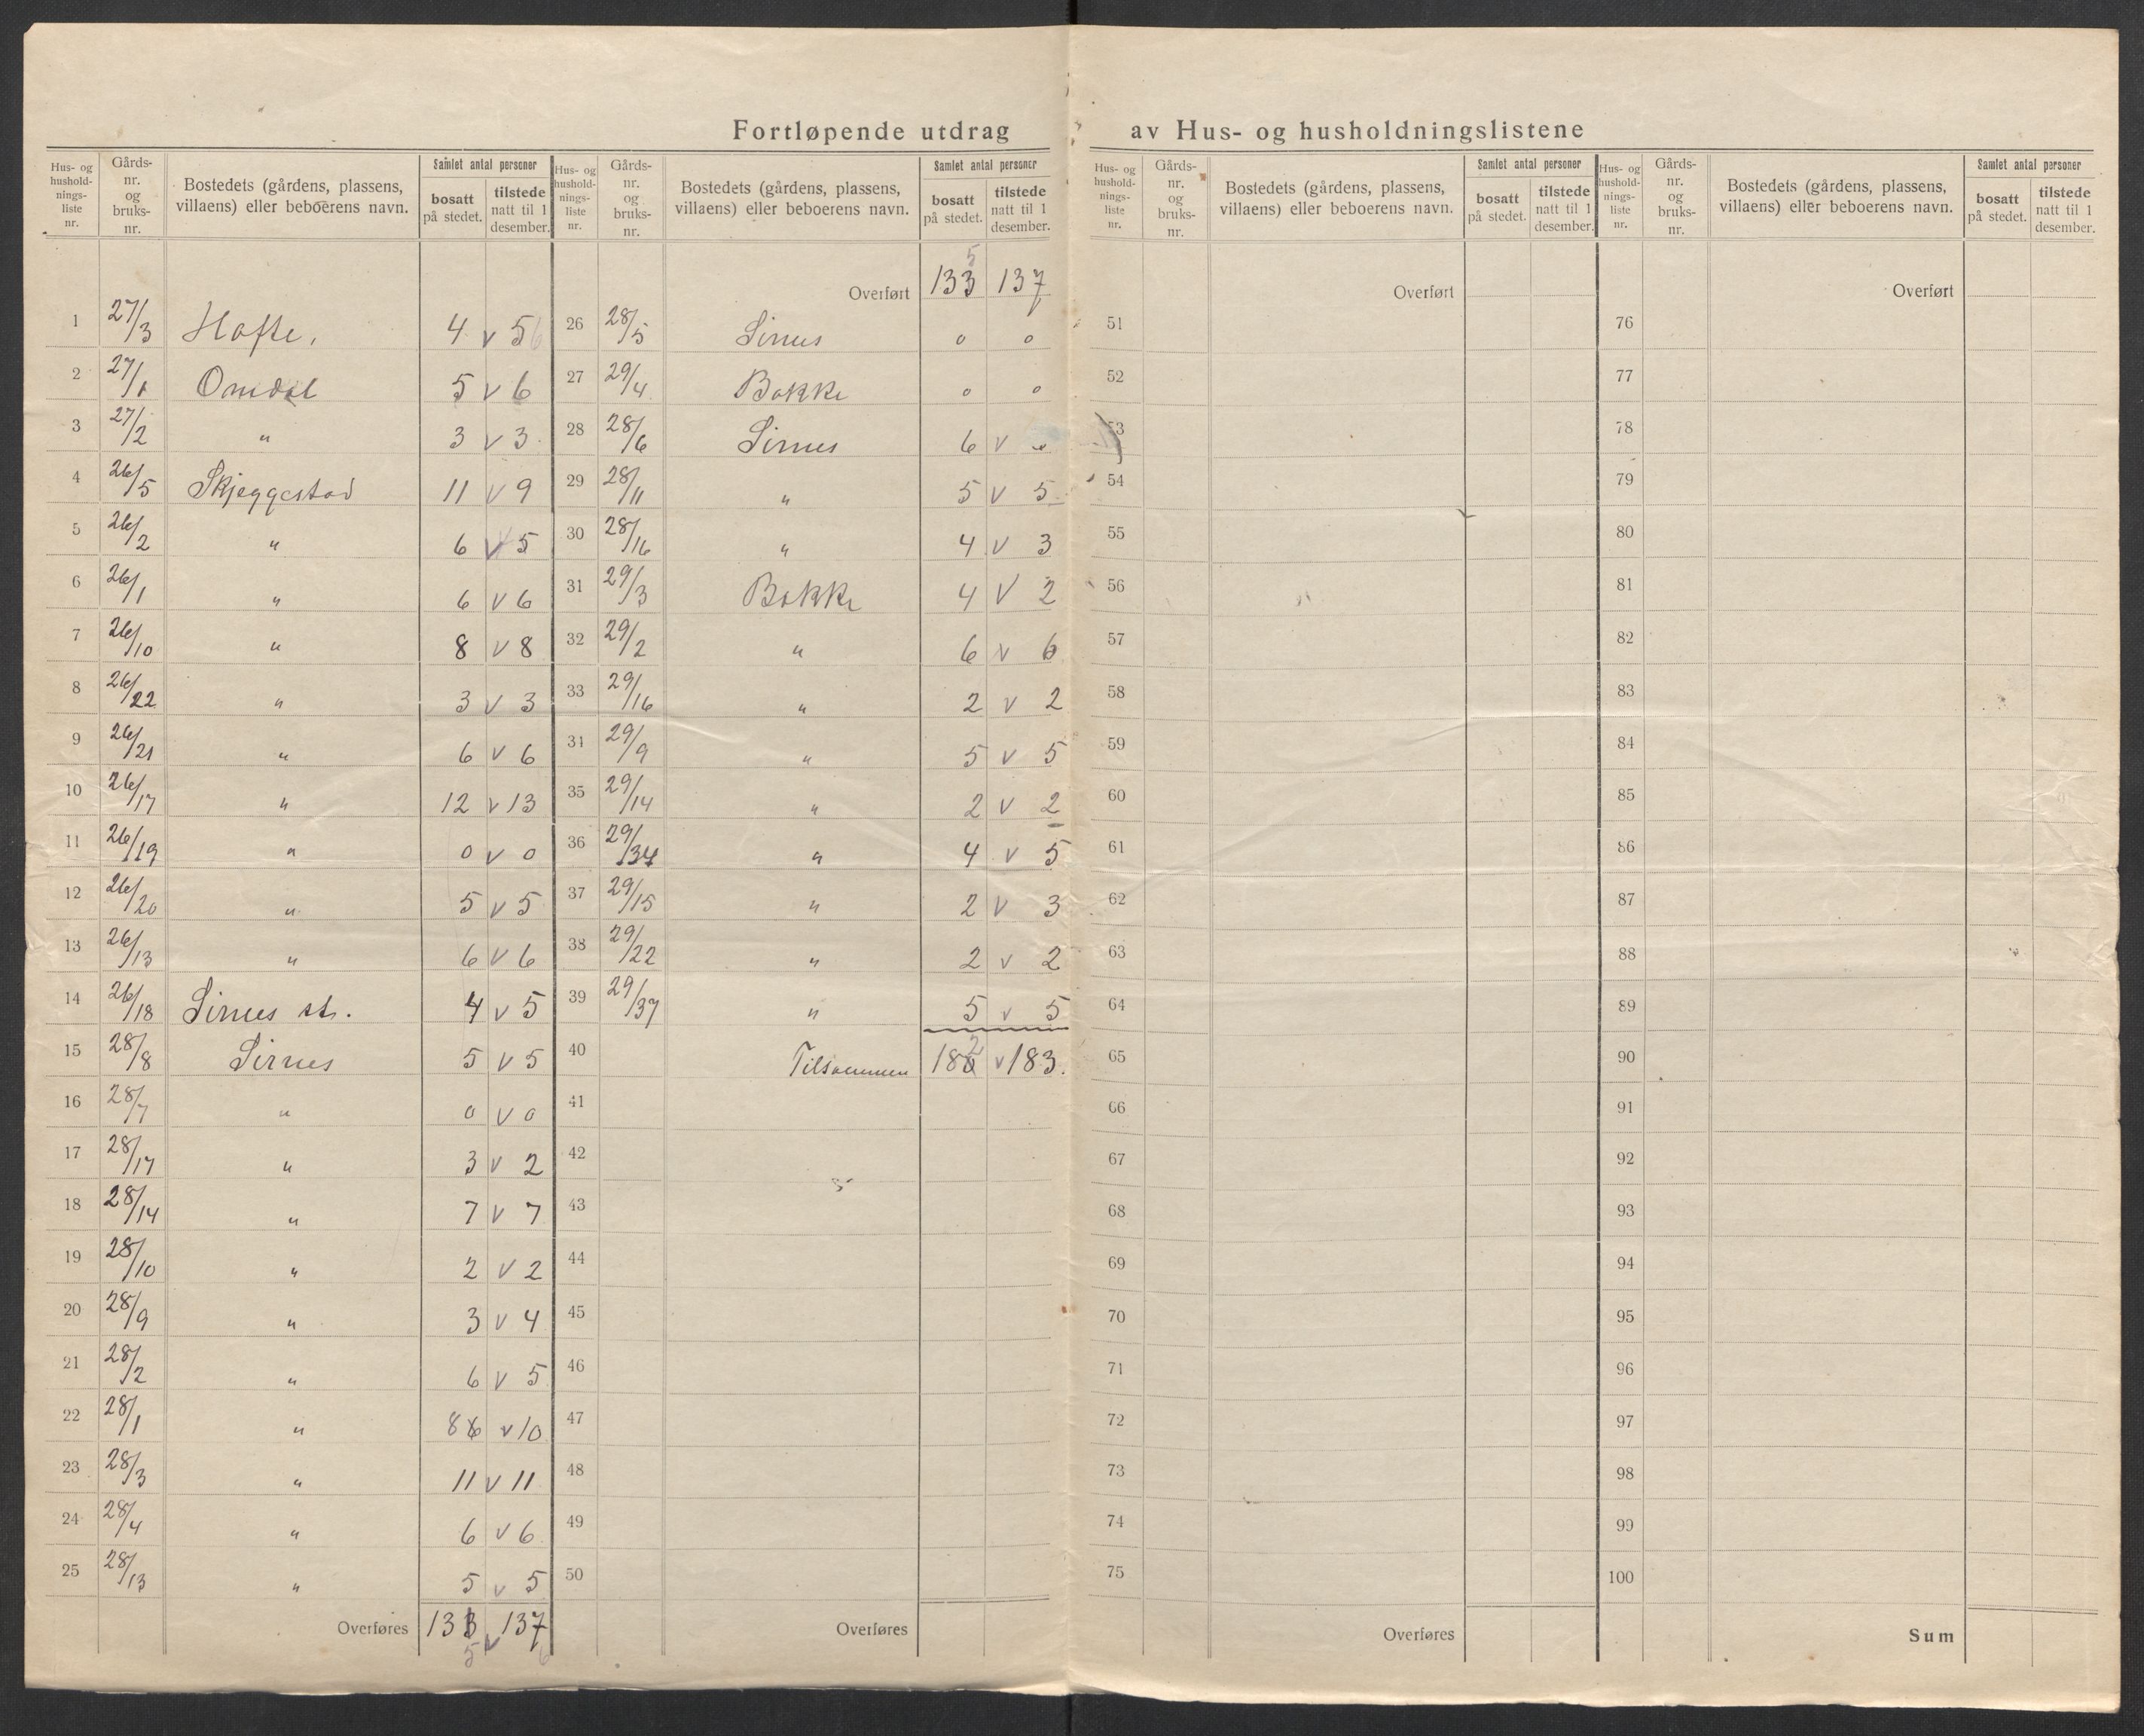 Fortløpende utdrag av Hus- og husholdningslistene
Hus- og hushold-nings-liste nr. | Gårds-nr. og bruks-nr. | Bostedets (gårdens, plassens, villaens) eller beboerens navn. | Samlet antal personer | bosatt på stedet. | tilstede natt til 1 desember.
1 27/3 Hafte, 4 v 5 6
2 27/1 Omdal 5 v 6
3 27/2 " 3 v 3
4 26/5 Skjeggestad 11 v 9
5 26/2 " 6 v 5
6 26/1 " 6 v 6
7 26/10 " 8 v 8
8 26/22 " 3 v 3
9 26/21 " 6 v 6
10 26/17 " 12 v 13
11 26/19 " 0 v 0
12 26/20 " 5 v 5
13 26/13 " 6 v 6
14 26/18 Sirnes st. 4 v 5
15 28/8 Sirnes 5 v 5
16 28/7 " 0 v 0
17 28/17 " 3 v 2
18 28/14 " 7 v 7
19 28/10 " 2 v 2
20 28/9 " 3 v 4
21 28/2 " 6 v 5
22 28/1 " 8 v 10
23 28/3 " 11 v 11
24 28/4 " 6 v 6
25 28/13 " 5 v 5
Overføres 133 v 137
5 6
Hus- og hushold-nings-liste nr. | Gårds-nr. og bruks-nr. | Bostedets (gårdens, plassens, villaens) eller beboerens navn. | Samlet antal personer | bosatt på stedet. | tilstede natt til 1 desember.
5
Overført 133 137
26 28/5 Sirnes 0 0
27 29/4 Bakke 0 0
28 28/6 Sirnes 6 v
29 28/11 " 5 v 5
30 28/16 " 4 v 3
31 29/3 Bakke 4 v 2
32 29/2 " 6 v 6
33 29/16 " 2 v 2
34 29/9 " 5 v 5
35 29/14 " 2 v 2
36 29/34 " 4 v 5
37 29/15 " 2 v 3
38 29/22 " 2 v 2
39 29/37 " 5 v 5
40 Tilsammen 182 v 183.
41
42
43
44
45
46
47
48
49
50
Overføres
Hus- og hushold-nings-liste nr. | Gårds-nr. og bruks-nr. | Bostedets (gårdens, plassens, villaens) eller beboerens navn. | Samlet antal personer | bosatt på stedet. | tilstede natt til 1 desember.
Overført
51
52
53
54
55
56
57
58
59
60
61
62
63
64
65
66
67
68
69
70
71
72
73
74
75
Overføres
Hus- og hushold-nings-liste nr. | Gårds-nr. og bruks-nr. | Bostedets (gårdens, plassens, villaens) eller beboerens navn. | Samlet antal personer | bosatt på stedet. | tilstede natt til 1 desember.
Overført
76
77
78
79
80
81
82
83
84
85
86
87
88
89
90
91
92
93
94
95
96
97
98
99
100
Sum